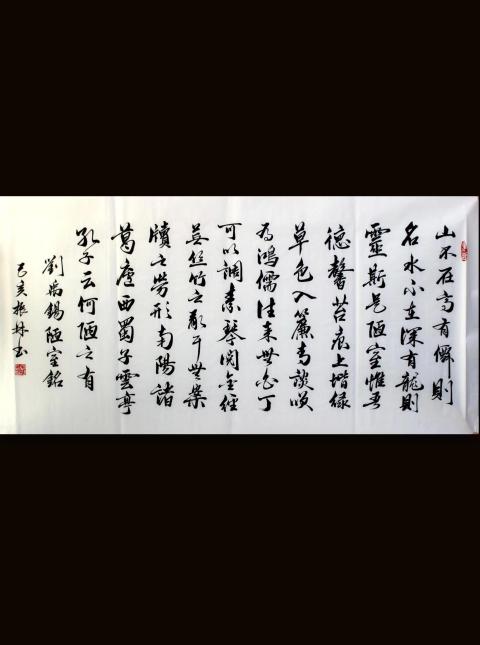 山不在高有僊則
名水不在深有龍則
靈斯是陋室惟吾
德馨苔痕上堦緑
草色入簾青談笑
有鴻儒往來無白丁
可以調素琴閱金經
無絲竹之亂耳無案
牘之勞形南陽諸
葛廬西蜀子雲亭
孔子云何陋之有
劉禹錫陋室銘
己亥振林書